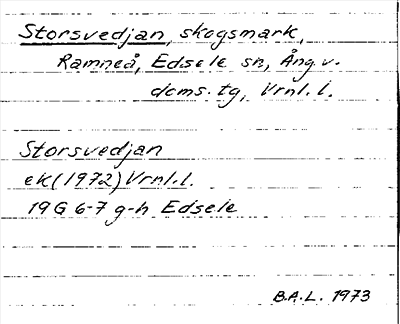 Storsvedjan, skogsmark,
Ramneå, Edsele sn, Ång.v.
doms.tg, Vrnl.l.
Storsvedjan
ek(1972) Vrnl.l.
19G 6-7 g-h Edsele
B.A.L. 1973